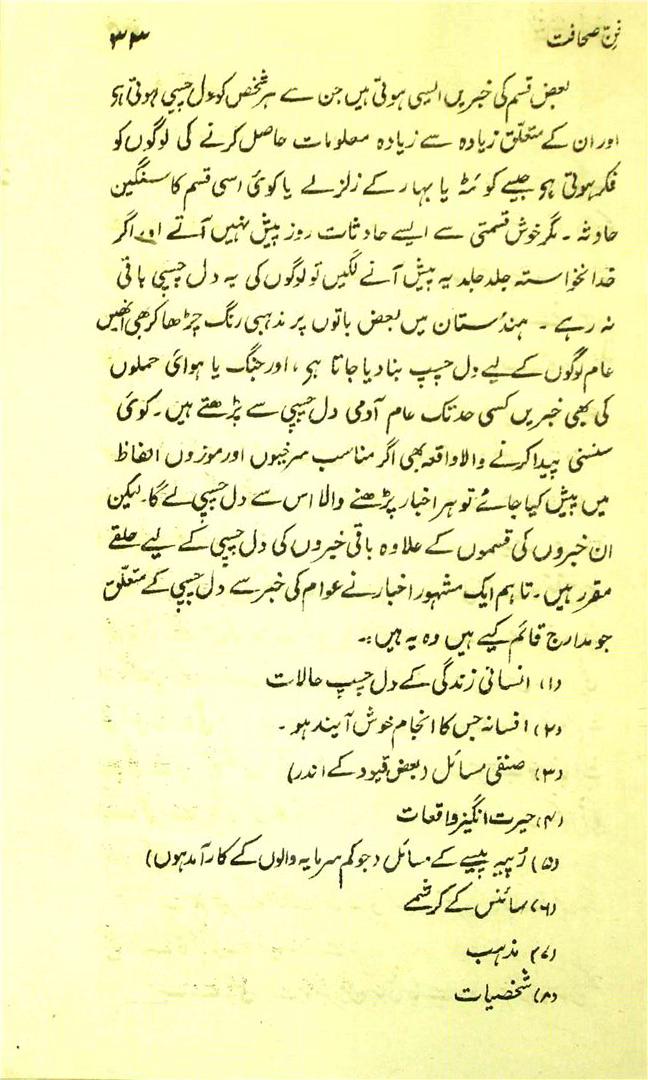 فنِّ صحافت ۳۳
بعض قسم کی خبریں ایسی ہوتی ہیں جن سے ہر شخص کو دل چسپی ہوتی ہو
اور ان کے متعلّق زیادہ سے زیادہ معلومات حاصل کرنے کی لوگوں کو
فکر ہوتی ہو جیسے کوئٹہ یا بہار کے زلزلے یا کوئی اسی قسم کا سنگین
حادثہ ۔ مگر خوش قسمتی سے ایسے حادثات روز پیش نہیں آتے اور اگر
خدانخواستہ جلد جلد یہ پیش آنے لگیں تو لوگوں کی یہ دل چسپی باقی
نہ رہے ۔ ہندُستان میں بعض باتوں پر مذہبی رنگ چڑھا کر بھی انھیں
عام لوگوں کے لیے دل چسپ بنا دیا جاتا ہو، اور جنگ یا ہوائی حملوں
کی بھی خبریں کسی حد تک عام آدمی دل چسپی سے پڑھتے ہیں ۔ کوئی
سنسنی پیدا کرنے والا واقعہ بھی اگر مناسب سرخیوں اور موزوں الفاظ
میں پیش کیا جائے تو ہر اخبار پڑھنے والا اس سے دل چسپی لے گا۔ لیکن
ان خبروں کی قسموں کے علاوہ باقی خبروں کی دل چسپی کے لیے حلقے
مقرر ہیں ۔ تاہم ایک مشہور اخبار نے عوام کی خبر سے دل چسپی کے متعلّق
جو مدارج قائم کیے ہیں وہ یہ ہیں:۔
(۱) انسانی زندگی کے دل چسپ حالات
(۲) افسانہ جس کا انجام خوش آیند ہو ۔
(۳) صنفی مسائل (بعض قیود کے اندر)
(۴) حیرت انگیز واقعات
(۵) رُپیہ پیسے کے مسائل (جو کم سرمایہ والوں کے کار آمد ہوں)
(۶) سائنس کے کرشمے
(۷) مذہب
(۸) شخصیات